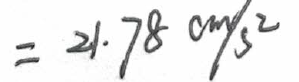 = 21.78 cm/s²